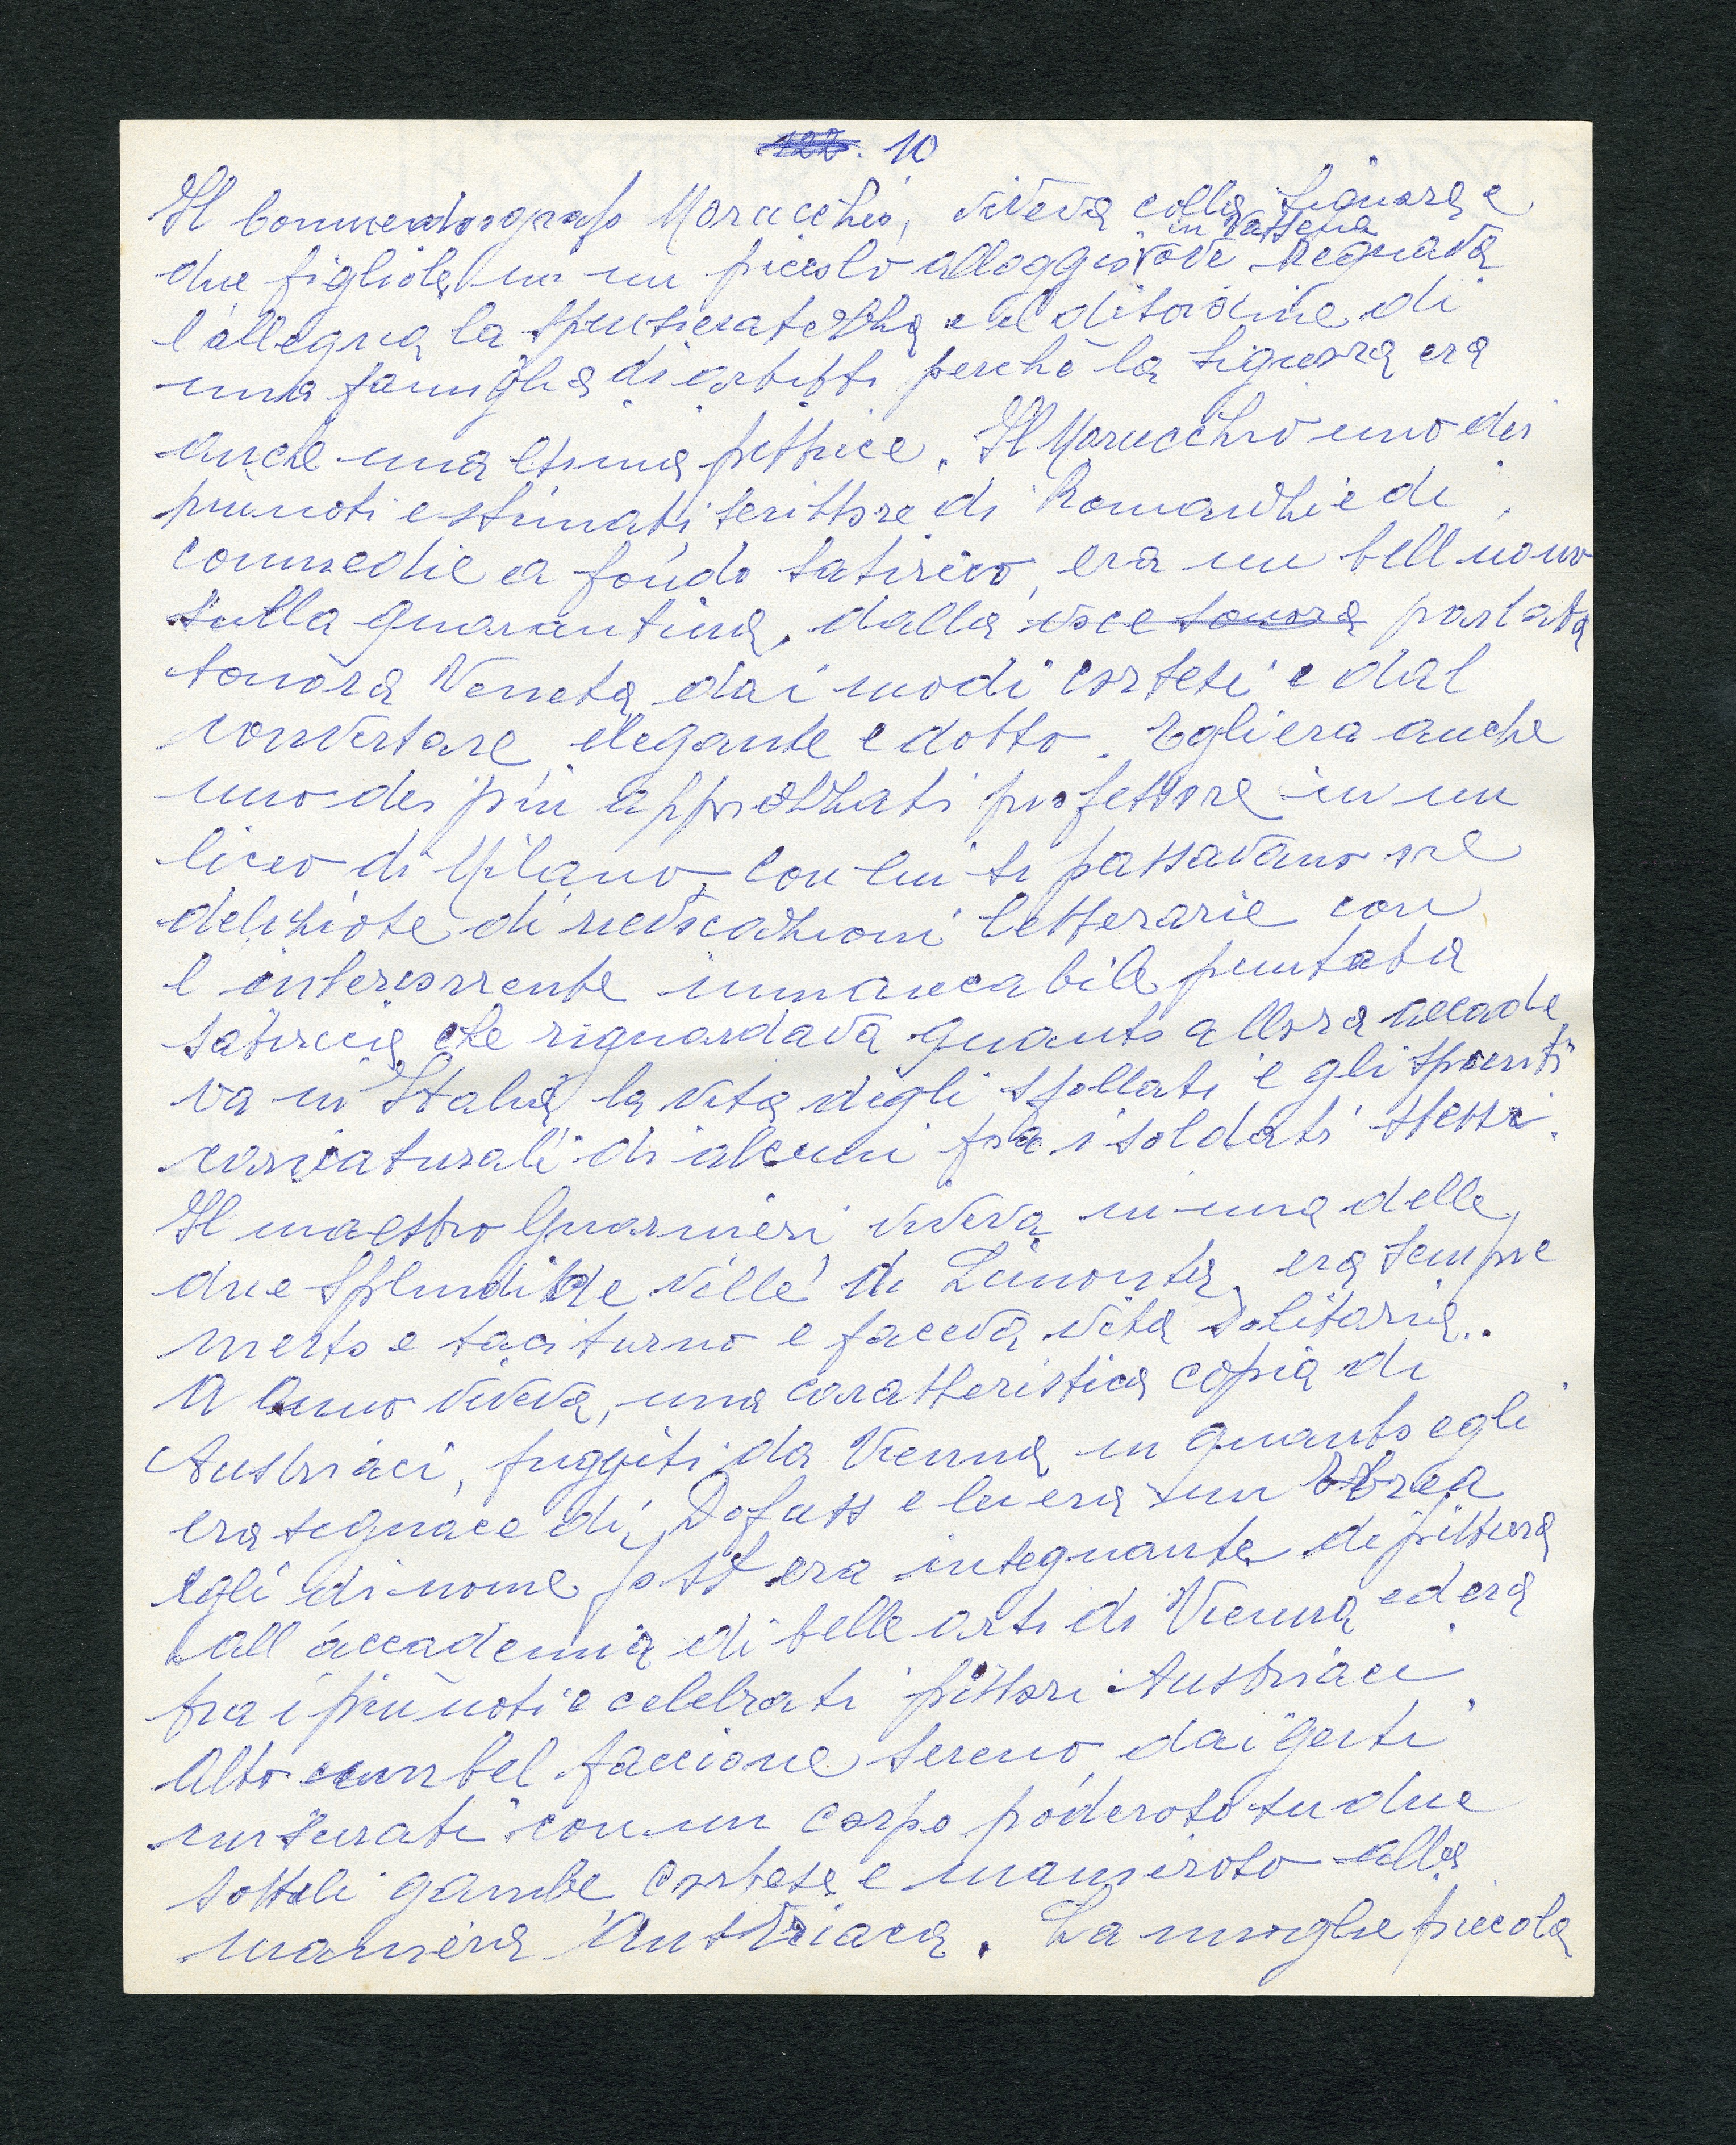 122. 10
Il Commediografo Marucchio, viveva colla Signora e
due figliole in un piccolo alloggio in Vassena ove Regnava
l'allegria la spensieratezza e il disordine di
una famiglia di artisti perchè la signora era
anche una esimia pittrice. Il Marucchio uno dei
più noti e stimati scrittore di Romanzi e di
commedie a fondo satirico, era un bell uomo
sulla quarantina, dalla voce sonora parlata
sonora Veneta dai modi cortesi e dal
conversare elegante e dotto. Egli era anche
uno dei più apprezzati professore in un
liceo di Milano, con lui si passavano ore
deliziose di rievocazioni letterarie con
l intercorrente immancabile puntata
satirica che riguardava quanto allora accade
va in Italia, la vita degli sfollati e gli spunti
caricaturali di alcuni fra i soldati stessi.
Il maestro Guarnieri viveva in una delle
due splendide ville di Limonta, era sempre
mesto e taciturno e faceva vita solitaria..
A Onno viveva, una caratteristica copia di
Austriaci, fuggiti da Vienna in quanto egli
era seguace di Dofuss e lei era un Ebrea
egli di nome era insegnante di pittura
all accademia di belle arti di Vienna ed era
fra i più noti e celebrati pittori Austriaci.
Alto con un bel faccione sereno dai gesti
misurati con un corpo poderoso su due
sottili gambe, cortese e manieroso alla
maniera Austriaca. La moglie piccola